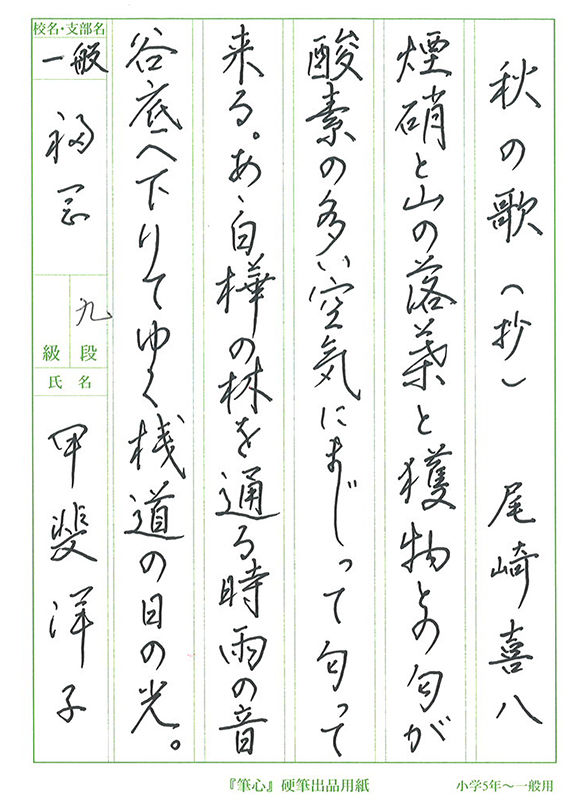 秋の歌（抄）　尾崎喜八
煙硝と山の落葉と獲物との匂が
酸素の多い空気にまじって匂って
来る。あゝ白樺の林を通る時雨の音
谷底へ下りてゆく桟道の日の光。
校名・支部名
一般
福
九
級 段
氏 名
甲斐洋子
『筆心』硬筆出品用紙
小学5年～一般用